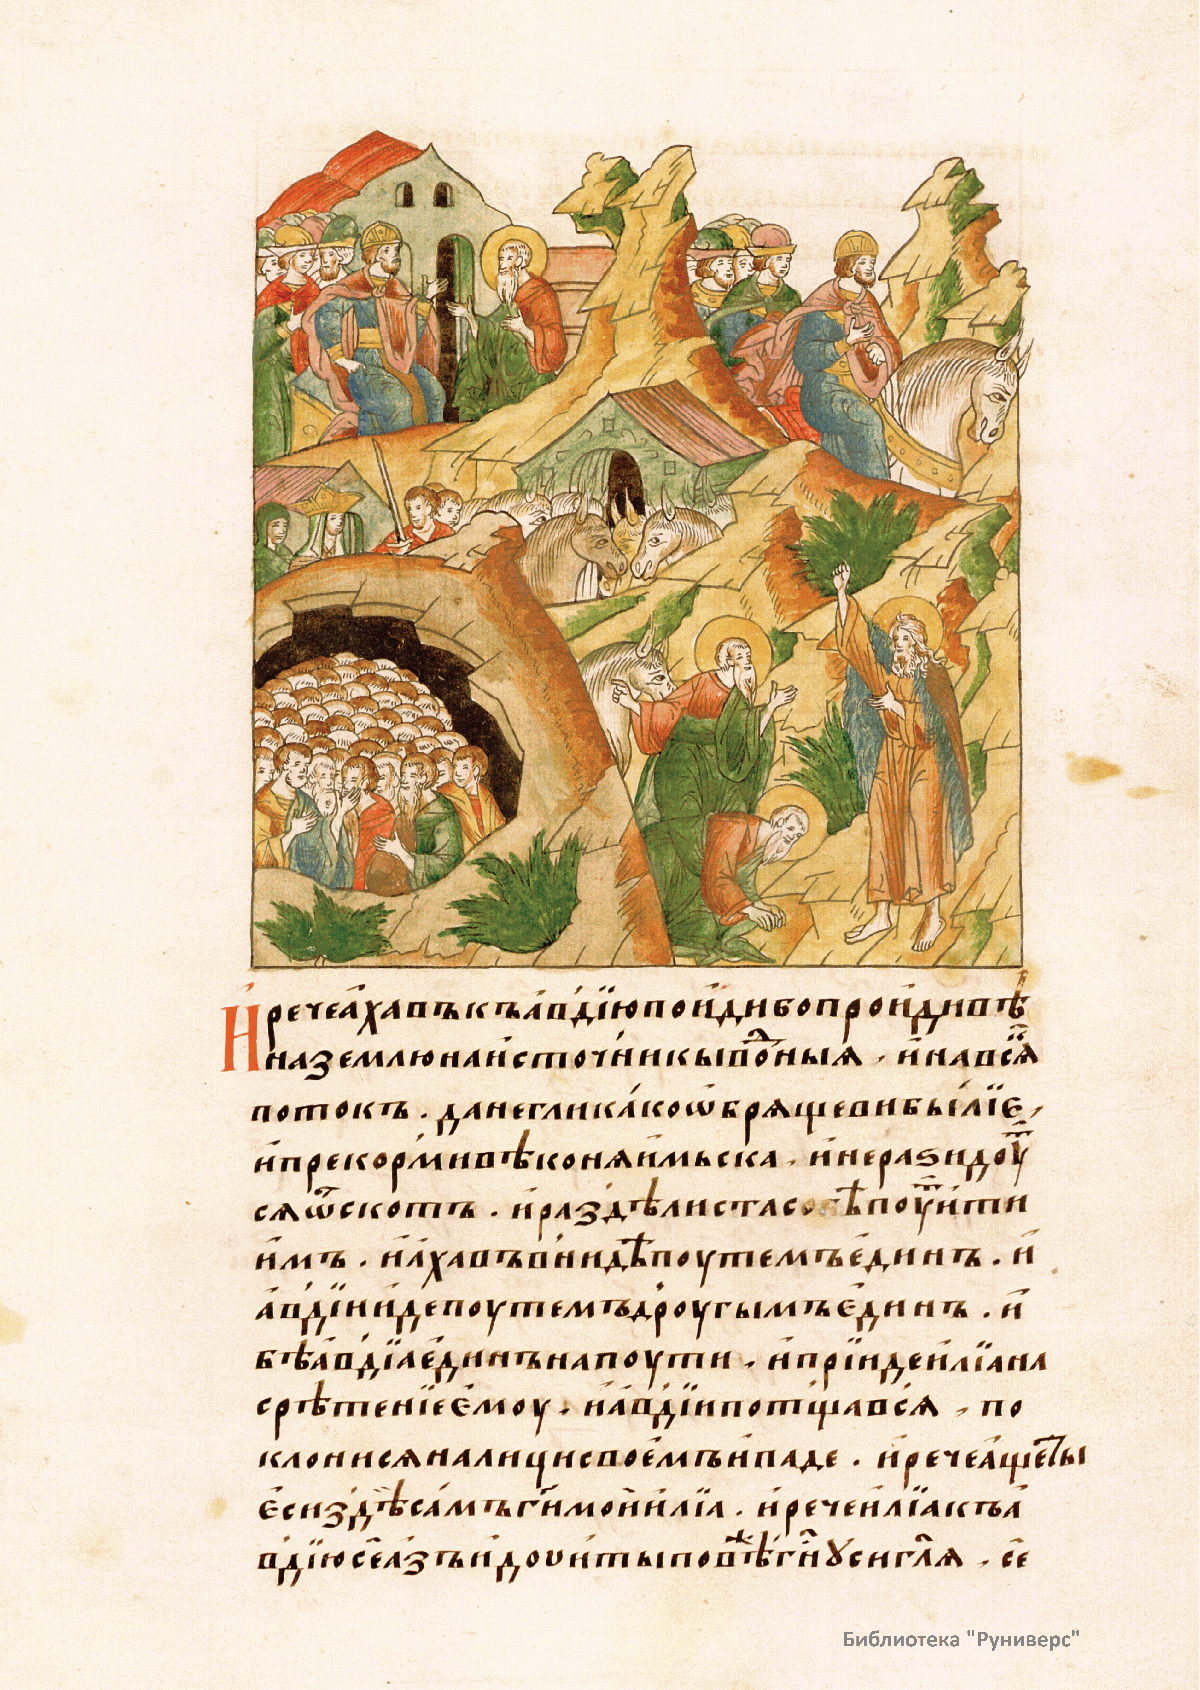 И҆речеа҆хавъкъа҆вдїюпои҆дибопрои҆дивѣ
наземлюнаи҆сточникывⷪ҇дныѧ . и҆навсѧ̑
потокъ . данеглика́коѡ҆брѧщевибы́лїе ,
и҆прекормивѣконѧи҆мьска . и҆неразидоуⷮ
сѧѿскотъ . и҆раздѣлистасобѣпоуⷮи҆ти
и҆мъ . и҆а҆хавъвниидѣпоутемъе҆динъ . и҆
а҆вдїии҆депоутемъдроугымъе҆динъ . и҆
бѣа҆вдїае҆динънапоути . и҆прїидеи҆лїана
срѣтенїее҆моу . и҆а҆вдїипотщавсѧ , по
клонисѧналицисвое҆мъи҆паде . и҆речеа҆щеⷮты
е҆сиздѣса́мъг҃имои҆и҆лїа . и҆речеи҆лїакъа҆
вдїюсе҆а҆зъи҆доуи҆тыповѣⷤг҃нꙋсиг҃лѧ . се҆
Библиотека "Руниверс"